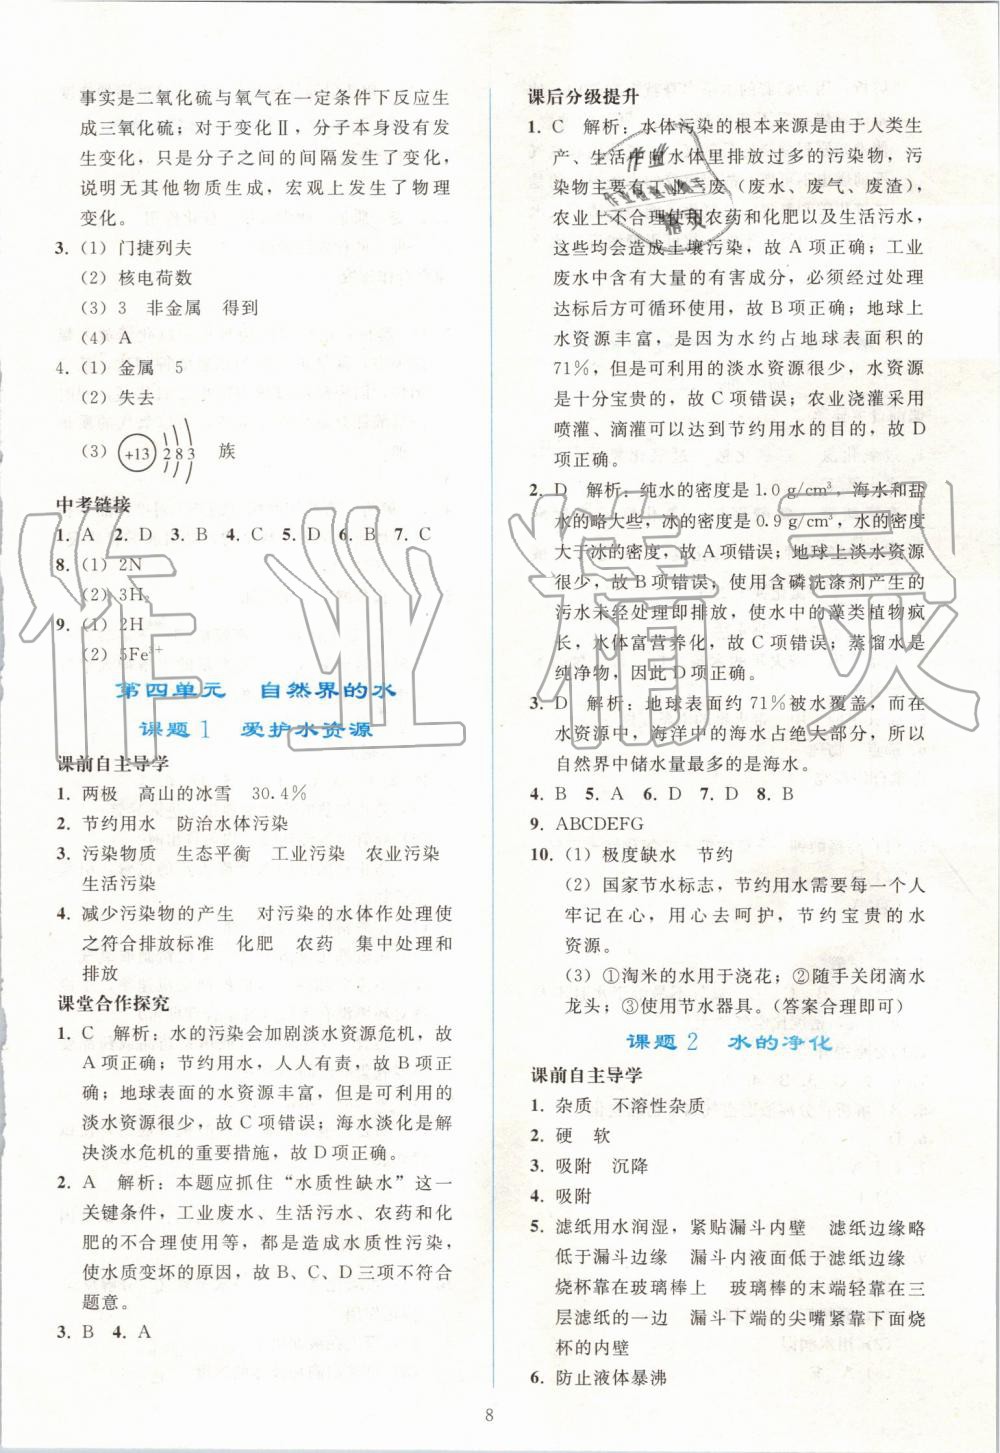 事实是二氧化硫与氧气在一定条件下反应生
成三氧化硫；对于变化Ⅱ，分子本身没有发
生变化，只是分子之间的间隔发生了变化，
说明无其他物质生成，宏观上发生了物理
变化。
3. （1）门捷列夫
（2）核电荷数
（3）3　非金属　得到
（4）A
4. （1）金属　5
（2）失去
（3）+13 2 8 3　族
中考链接
1. A　2. D　3. B　4. C　5. D　6. B　7. C
8. （1）2N
（2）3H₂
9. （1）2H
（2）5Fe³⁺
第四单元　自然界的水
课题1　爱护水资源
课前自主导学
1. 两极　高山的冰雪　30.4%
2. 节约用水　防治水体污染
3. 污染物质　生态平衡　工业污染　农业污染
生活污染
4. 减少污染物的产生　对污染的水体作处理使
之符合排放标准　化肥　农药　集中处理和
排放
课堂合作探究
1. C　解析：水的污染会加剧淡水资源危机，故
A项正确；节约用水，人人有责，故B项正
确；地球表面的水资源丰富，但是可利用的
淡水资源很少，故C项错误；海水淡化是解
决淡水危机的重要措施，故D项正确。
2. A　解析：本题应抓住“水质性缺水”这一
关键条件，工业废水、生活污水、农药和化
肥的不合理使用等，都是造成水质性污染，
使水质变坏的原因，故B、C、D三项不符合
题意。
3. B　4. A
课后分级提升
1. C　解析：水体污染的根本来源是由于人类生
产、生活向水体里排放过多的污染物，污
染物主要有工业三废（废水、废气、废渣），
农业上不合理使用农药和化肥以及生活污水，
这些均会造成土壤污染，故A项正确；工业
废水中含有大量的有害成分，必须经过处理
达标后方可循环使用，故B项正确；地球上
水资源丰富，是因为水约占地球表面积的
71%，但是可利用的淡水资源很少，水资源
是十分宝贵的，故C项错误；农业浇灌采用
喷灌、滴灌可以达到节约用水的目的，故D
项正确。
2. D　解析：纯水的密度是1.0 g/cm³，海水和盐
水的略大些，冰的密度是0.9 g/cm³，水的密度
大于冰的密度，故A项错误；地球上淡水资源
很少，故B项错误，使用含磷洗涤剂产生的
污水未经处理即排放，使水中的藻类植物疯
长，水体富营养化，故C项错误；蒸馏水是
纯净物，因此D项正确。
3. D　解析：地球表面约71%被水覆盖，而在
水资源中，海洋中的海水占绝大部分，所以
自然界中储水量最多的是海水。
4. B　5. A　6. D　7. D　8. B
9. ABCDEFG
10. （1）极度缺水　节约
（2）国家节水标志，节约用水需要每一个人
牢记在心，用心去呵护，节约宝贵的水
资源。
（3）①淘米的水用于浇花；②随手关闭滴水
龙头；③使用节水器具。（答案合理即可）
课题2　水的净化
课前自主导学
1. 杂质　不溶性杂质
2. 硬　软
3. 吸附　沉降
4. 吸附
5. 滤纸用水润湿，紧贴漏斗内壁　滤纸边缘略
低于漏斗边缘　漏斗内液面低于滤纸边缘
烧杯靠在玻璃棒上　玻璃棒的末端轻靠在三
层滤纸的一边　漏斗下端的尖嘴紧靠下面烧
杯的内壁
6. 防止液体暴沸
8
作业精灵